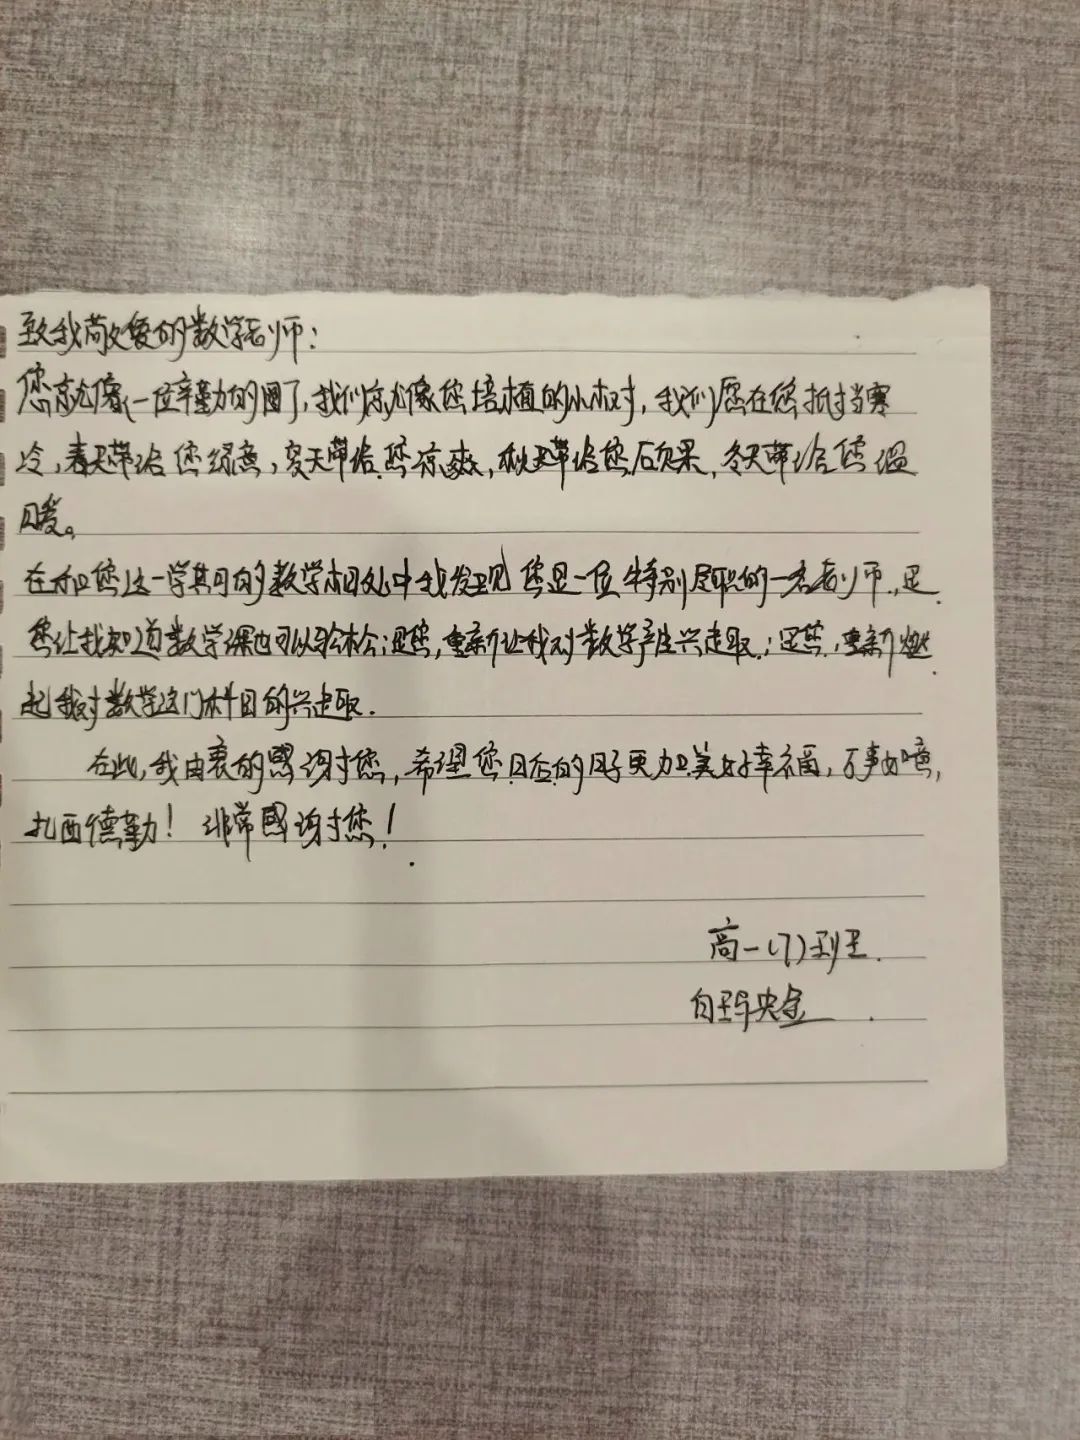 致我敬爱的数学老师：
您就像一位辛勤的园丁，我们就像您培植的小树，我们愿在您抵挡寒
冷，春天带给您绿意，夏天带给您凉爽，秋天带给您硕果，冬天带给您温
暖。
在和您这一学期的数学相处中我发现您是一位特别尽职的一名老师，是
您让我知道数学课也可以轻松；是您，重新让我对数学产生兴趣；是您，重新燃
起我对数学这门科目的兴趣.
在此，我由衷的感谢您，希望您日后的日子更加美好幸福，万事如意，
扎西德勤！ 非常感谢您！
高一（7）班.
白玛央金